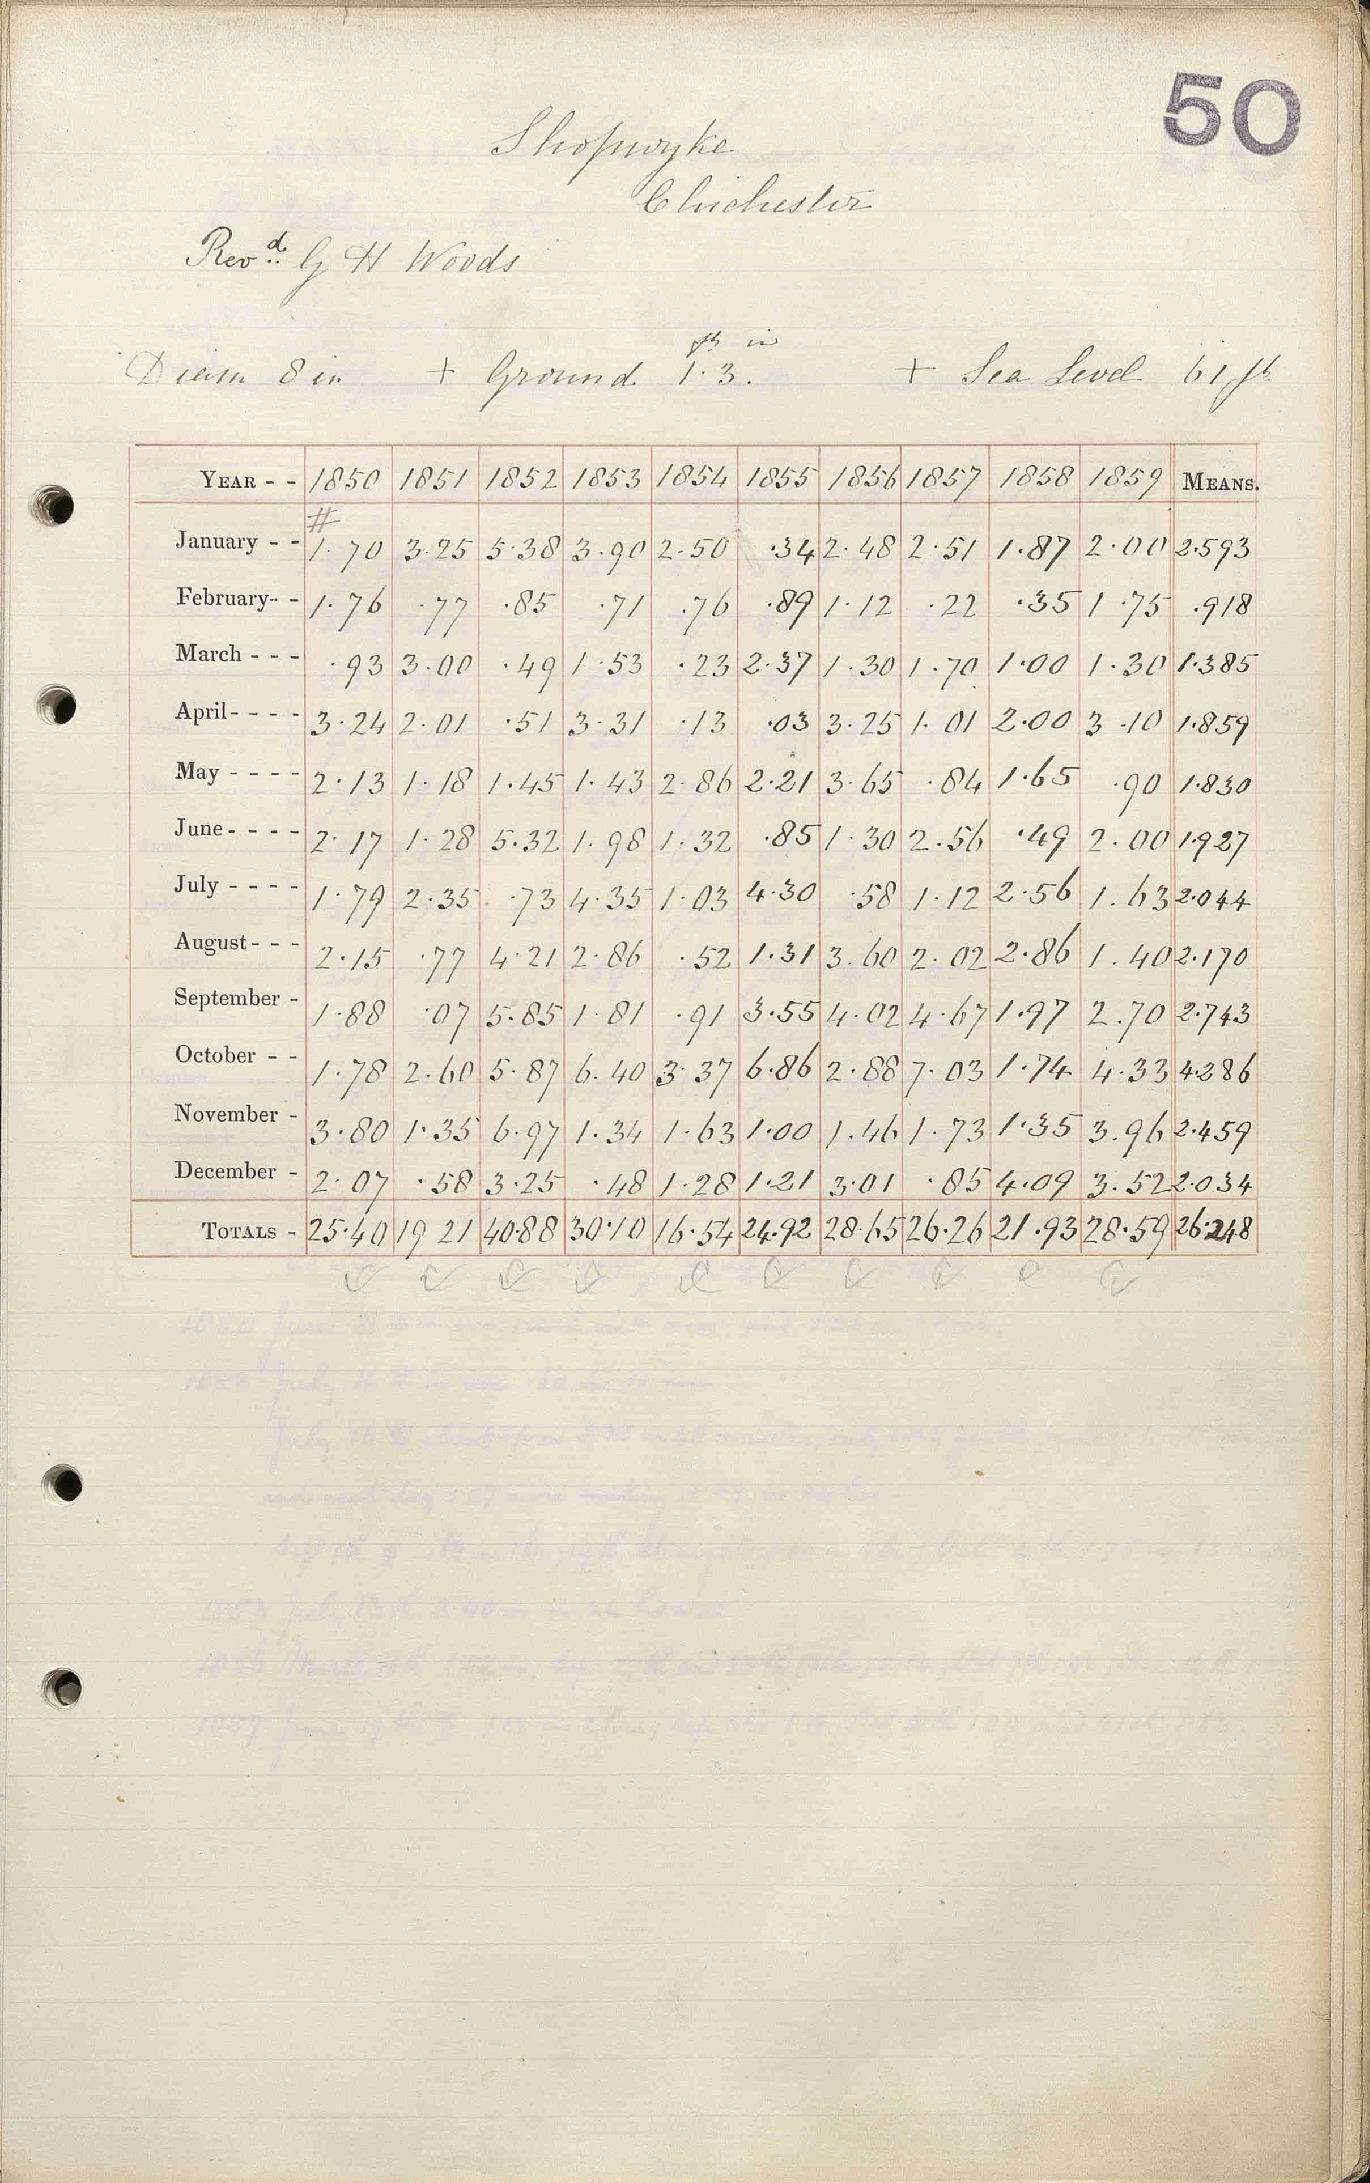 50
Shopwyke
Chichester
Revd. G H Woods
ft in
Diam 8 in + Ground 1.3. + Sea Level 61 ft
YEAR - - 1850 1851 1852 1853 1854 1855 1856 1857 1858 1859 MEANS.
#
January - - 1.70 3.25 5.38 3.90 2.50 .34 2.48 2.51 1.87 2.00 2.593
February - - 1.76 .77 .85 .71 .76 .89 1.12 .22 .35 1.75 .918
March - - - .93 3.00 .49 1.53 .23 2.37 1.30 1.70 1.00 1.30 1.385
April - - - - 3.24 2.01 .51 3.31 .13 .03 3.25 1.01 2.00 3.10 1.859
May - - - - 2.13 1.18 1.45 1.43 2.86 2.21 3.65 .84 1.65 .90 1.830
June - - - - 2.17 1.28 5.32 1.98 1.32 .85 1.30 2.56 .49 2.00 1.927
July - - - - 1.79 2.35 .73 4.35 1.03 4.30 .58 1.12 2.56 1.63 2.044
August - - - 2.15 .77 4.21 2.86 .52 1.31 3.60 2.02 2.86 1.40 2.170
September - 1.88 .07 5.85 1.81 .91 3.55 4.02 4.67 1.97 2.70 2.743
October - - 1.78 2.60 5.87 6.40 3.37 6.86 2.88 7.03 1.74 4.33 4.286
November - 3.80 1.35 6.97 1.34 1.63 1.00 1.46 1.73 1.35 3.96 2.459
December - 2.07 .58 3.25 .48 1.28 1.21 3.01 .85 4.09 3.52 2.034
TOTALS - 25.40 19 21 40.88 30.10 16.54 24.92 28.65 26.26 21.93 28.59 26.248